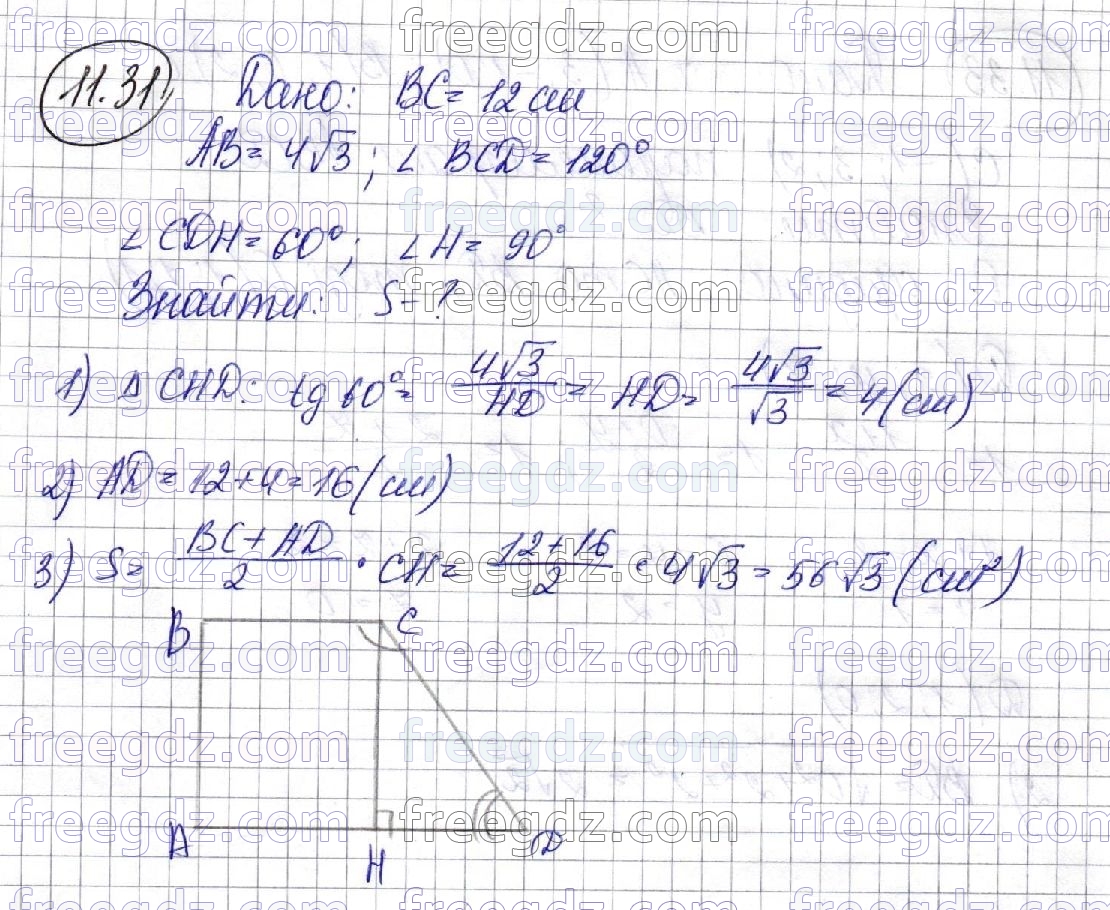 11.31 Дано: BC = 12 см
AB = 4√3; ∠ BCD = 120°
∠ CDH = 60°; ∠ H = 90°
Знайти: S - ?
1) Δ CHD: tg 60° = 4√3/HD = HD = 4√3/√3 = 4 (см)
2) AD = 12 + 4 = 16 (см)
3) S = (BC + AD)/2 · CH = (12 + 16)/2 · 4√3 = 56√3 (см²)
B C
A H D
freegdz.com